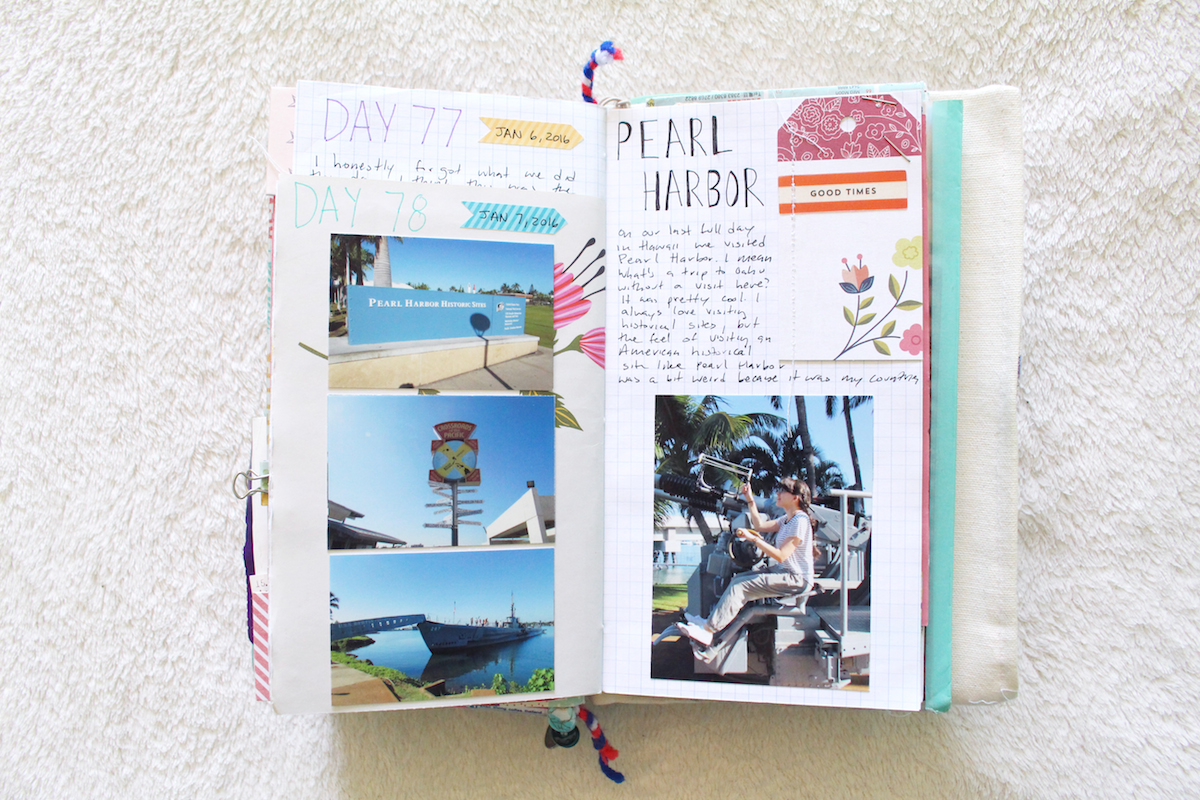 DAY 77
JAN 6, 2016
I honestly forgot what we did
DAY 78
JAN 7, 2016
PEARL HARBOR HISTORIC SITES
CROSSROADS
PACIFIC
PEARL
HARBOR
GOOD TIMES
on our last full day
in Hawaii we visited
Pearl Harbor. I mean
what's a trip to Oahu
without a visit here?
It was pretty cool. I
always love visiting
historical sites, but
the feel of visiting an
American historical
site like Pearl Harbor
was a bit weird because it was my countries